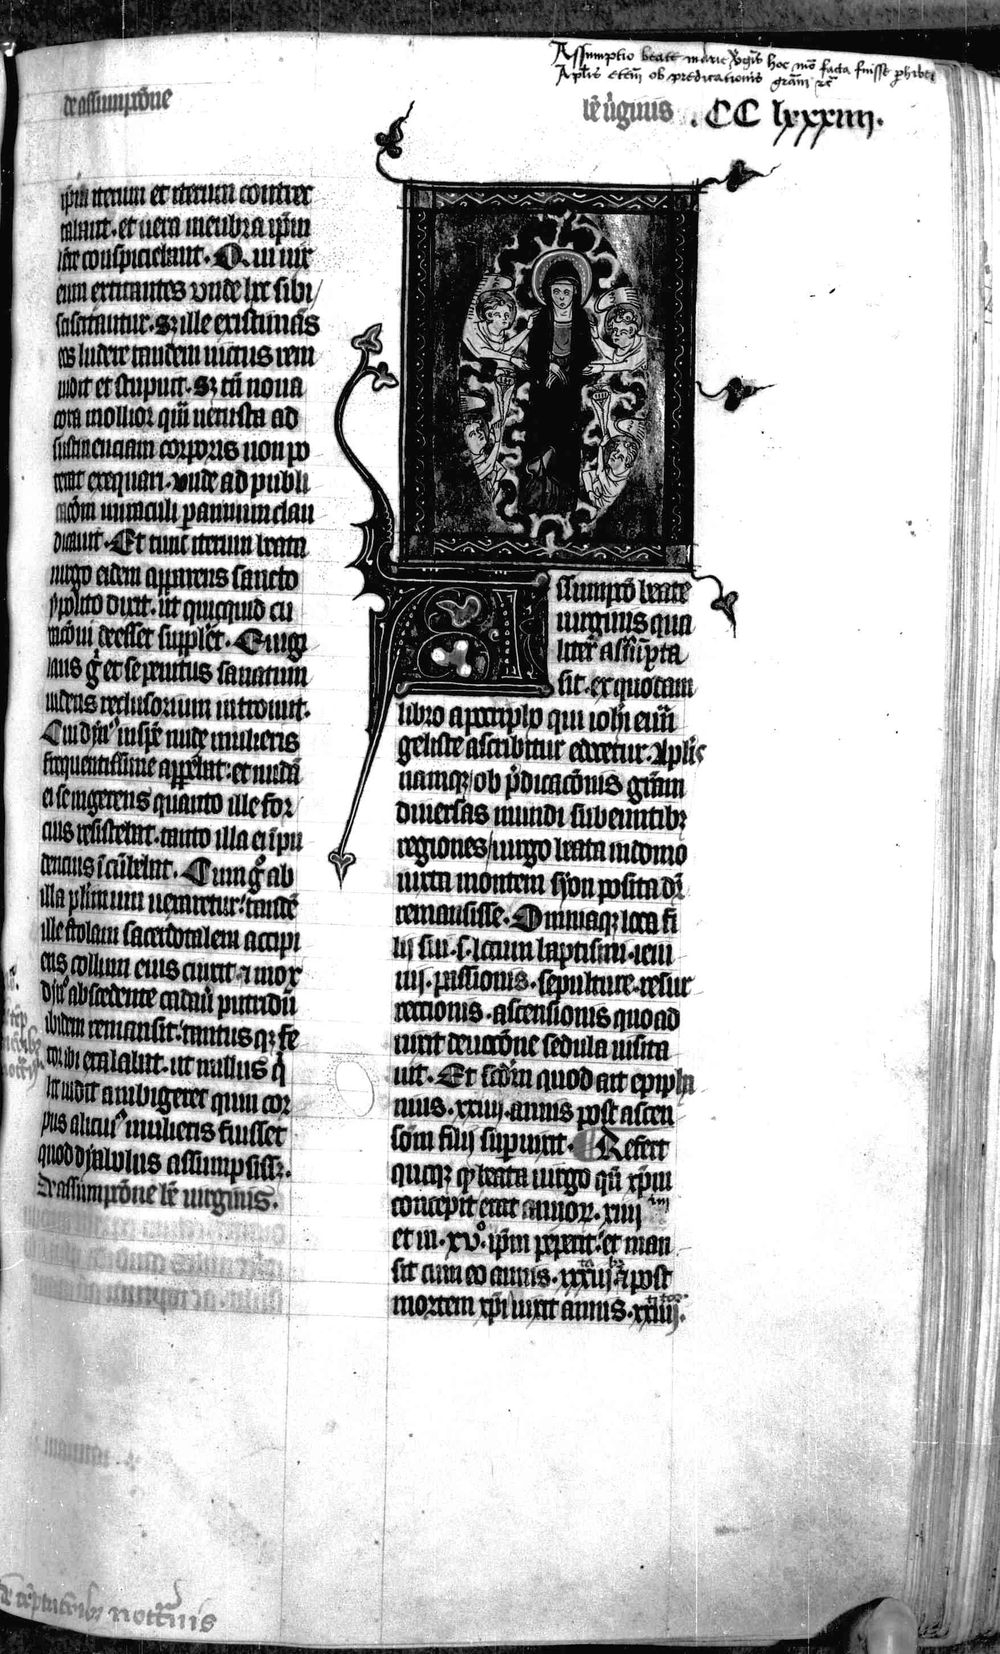 Assumptio beate marie v̾gīs hoc mō facta fuisse ꝓhibet
Apl̄is eteī ob predicationis grām
de assumpcōne
bē ūginis . CC lxxxiiij.
ip̄m iterum et iterum contrec
tabant. et uera menbra ip̄m
hr̄e conspiciebant. Qui uix
eum excitantes unde hec sibi
sciscitantur. sꝫ ille existimās
eos ludere tandem uictus rem
uidit et stupuit. Sꝫ cū noua
cora mollior qm̄ uetusta ad
sustinenciam corporis non po
terat exequari. vnde ad publi
cacōm miraculi p annum clau
dicauit. Et tunc iterum beata
uirgo eidem apparens sancto
ypolito dixit. ut quicquid cu
racōni deesset suppl̄et. Euigi
lans g̊ et se penitus sanatum
uidens reclusorium introiuit.
Cui dyaꝰ in spē nude mulieris
frequentissime apparebat: et nudā
ei se ingerens quanto ille for
cius resistebat. tanto illa ei īpu
dencius īcūbebat. Cum g̊ ab
illa plurimum uexaretur: tandē
ille stolam sacerdotalem accipi
ens collum eius cinxit. ⁊ mox
dyaꝰ abscedente cadau̾ putridū
ibidem remansit. tantus qꝫ fe
tor ibi exalabat. ut nullus q̄
hic uidit ambigeret quin cor
pus alicuiꝰ mulieris fuisset
quod dyabolus assumpsissꝫ.
De assumpcōne bē uirginis.
Assumpcō beate
uirginis qua
liter assūpta
sit. ex quodam
libro apocripho qui ioh̄i euā
geliste ascribitur edocetur. Apl̄is
namqꝫ ob p̄dicacōnis grām
diuersas mundi subeuntibꝫ
regiones / uirgo beata in domo
iuxta montem syon posita dr̄
remansisse. Omniaqꝫ loca fi
lij sui .s. locum baptismi. ieiu
nij. passionis. sepulture. resur
rectionis. ascensionis quoad
uixit deuocōne sedula uisita
uit. Et scd̄m quod ait epipha
nius. xxiiij. annis post ascen
sōm filij superuixit. Refert
quoqꝫ ꝙ beata uirgo qn̄ xp̄m
concepit erat annoꝝ. xiiij
et in .xvº. ip̄m peperit: et man
sit cum eo annis. xxxiij ⁊ post
mortem xp̄i uixit annis. xxiiij.
nocturnis